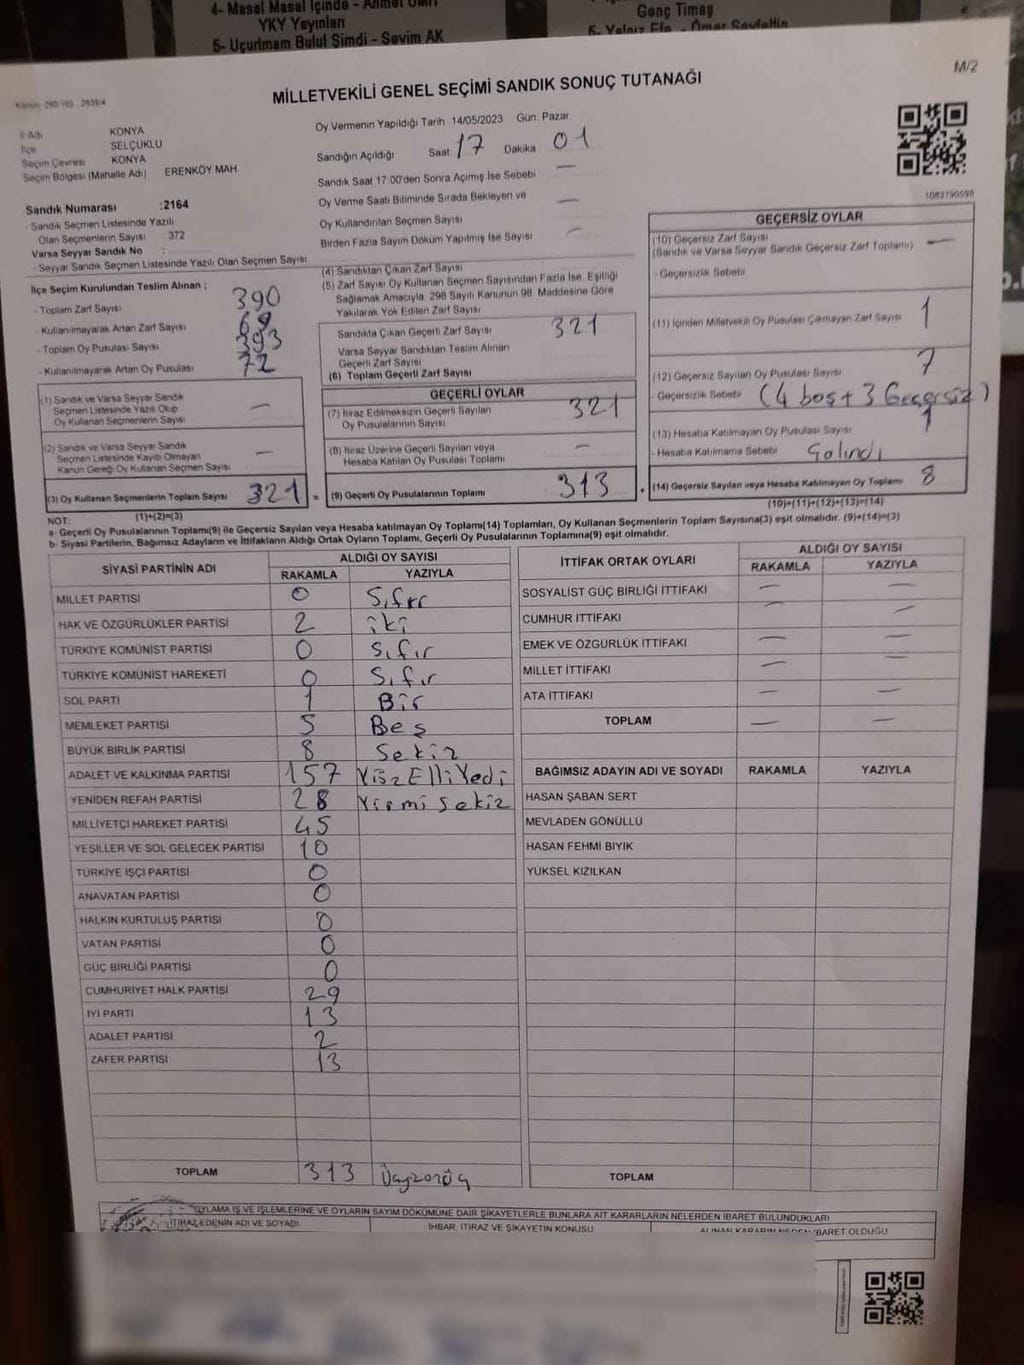 4- Masal Masal İçinde - Ahmet ÜMİT
YKY Yayınları
5- Uçurtmam Bulut Şimdi - Sevim AK
Genç Timaş
5- Yalnız Efe - Ömer Seyfettin
M/2
MİLLETVEKİLİ GENEL SEÇİMİ SANDIK SONUÇ TUTANAĞI
İl Adı KONYA
İlçe SELÇUKLU
Seçim Çevresi KONYA
Seçim Bölgesi (Mahalle Adı) ERENKÖY MAH
Oy Vermenin Yapıldığı Tarih 14/05/2023 Gün. Pazar
Sandığın Açıldığı Saat 17 Dakika 01
Sandık Saat 17:00'den Sonra Açılmış İse Sebebi —
Oy Verme Saati Bitiminde Sırada Bekleyen ve
Oy Kullandırılan Seçmen Sayısı —
Birden Fazla Sayım Döküm Yapılmış İse Sayısı —
1083790598
Sandık Numarası :2164
- Sandık Seçmen Listesinde Yazılı
Olan Seçmenlerin Sayısı 372
Varsa Seyyar Sandık No :
- Seyyar Sandık Seçmen Listesinde Yazılı Olan Seçmen Sayısı
İlçe Seçim Kurulundan Teslim Alınan :
- Toplam Zarf Sayısı 390
- Kullanılmayarak Artan Zarf Sayısı 69
- Toplam Oy Pusulası Sayısı 393
- Kullanılmayarak Artan Oy Pusulası 72
(1) Sandık ve Varsa Seyyar Sandık
Seçmen Listesinde Yazılı Olup
Oy Kullanan Seçmenlerin Sayısı —
(2) Sandık ve Varsa Seyyar Sandık
Seçmen Listesinde Kayıtlı Olmayan
Kanun Gereği Oy Kullanan Seçmen Sayısı —
(3) Oy Kullanan Seçmenlerin Toplam Sayısı 321 =
(1)+(2)=(3)
(4) Sandıktan Çıkan Zarf Sayısı
(5) Zarf Sayısı Oy Kullanan Seçmen Sayısından Fazla İse, Eşitliği
Sağlamak Amacıyla, 298 Sayılı Kanunun 98. Maddesine Göre
Yakılarak Yok Edilen Zarf Sayısı
Sandıkta Çıkan Geçerli Zarf Sayısı 321
Varsa Seyyar Sandıktan Teslim Alınan
Geçerli Zarf Sayısı
(6) Toplam Geçerli Zarf Sayısı
GEÇERLİ OYLAR
(7) İtiraz Edilmeksizin Geçerli Sayılan
Oy Pusulalarının Sayısı 321
(8) İtiraz Üzerine Geçerli Sayılan veya
Hesaba Katılan Oy Pusulası Toplamı —
(9) Geçerli Oy Pusulalarının Toplamı 313 +
GEÇERSİZ OYLAR
(10) Geçersiz Zarf Sayısı
(Sandık ve Varsa Seyyar Sandık Geçersiz Zarf Toplamı) —
- Geçersizlik Sebebi
(11) İçinden Milletvekili Oy Pusulası Çıkmayan Zarf Sayısı 1
(12) Geçersiz Sayılan Oy Pusulası Sayısı 7
- Geçersizlik Sebebi (4 boş + 3 Geçersiz)
(13) Hesaba Katılmayan Oy Pusulası Sayısı 1
- Hesaba Katılmama Sebebi Çalındı
(14) Geçersiz Sayılan veya Hesaba Katılmayan Oy Toplamı 8
(10)+(11)+(12)+(13)=(14)
NOT:
a- Geçerli Oy Pusulalarının Toplamı(9) ile Geçersiz Sayılan veya Hesaba katılmayan Oy Toplamı(14) Toplamları, Oy Kullanan Seçmenlerin Toplam Sayısına(3) eşit olmalıdır. (9)+(14)=(3)
b- Siyasi Partilerin, Bağımsız Adayların ve İttifakların Aldığı Ortak Oyların Toplamı, Geçerli Oy Pusulalarının Toplamına(9) eşit olmalıdır.
SİYASİ PARTİNİN ADI ALDIĞI OY SAYISI
RAKAMLA YAZIYLA
MİLLET PARTİSİ 0 Sıfır
HAK VE ÖZGÜRLÜKLER PARTİSİ 2 iki
TÜRKİYE KOMÜNİST PARTİSİ 0 Sıfır
TÜRKİYE KOMÜNİST HAREKETİ 0 Sıfır
SOL PARTİ 1 Bir
MEMLEKET PARTİSİ 5 Beş
BÜYÜK BİRLİK PARTİSİ 8 Sekiz
ADALET VE KALKINMA PARTİSİ 157 Yüz Elli Yedi
YENİDEN REFAH PARTİSİ 28 Yirmi Sekiz
MİLLİYETÇİ HAREKET PARTİSİ 45
YEŞİLLER VE SOL GELECEK PARTİSİ 10
TÜRKİYE İŞÇİ PARTİSİ 0
ANAVATAN PARTİSİ 0
HALKIN KURTULUŞ PARTİSİ 0
VATAN PARTİSİ 0
GÜÇ BİRLİĞİ PARTİSİ 0
CUMHURİYET HALK PARTİSİ 29
İYİ PARTİ 13
ADALET PARTİSİ 2
ZAFER PARTİSİ 13
TOPLAM 313 Üçyüzonüç
İTTİFAK ORTAK OYLARI ALDIĞI OY SAYISI
RAKAMLA YAZIYLA
SOSYALİST GÜÇ BİRLİĞİ İTTİFAKI — —
CUMHUR İTTİFAKI — —
EMEK VE ÖZGÜRLÜK İTTİFAKI — —
MİLLET İTTİFAKI — —
ATA İTTİFAKI — —
TOPLAM — —
BAĞIMSIZ ADAYIN ADI VE SOYADI RAKAMLA YAZIYLA
HASAN ŞABAN SERT
MEVLADEN GÖNÜLLÜ
HASAN FEHMİ BIYIK
YÜKSEL KIZILKAN
TOPLAM
OYLAMA İŞ VE İŞLEMLERİNE VE OYLARIN SAYIM DÖKÜMÜNE DAİR ŞİKAYETLERLE BUNLARA AİT KARARLARIN NELERDEN İBARET BULUNDUKLARI
İTİRAZ EDENİN ADI VE SOYADI İHBAR, İTİRAZ VE ŞİKAYETİN KONUSU ALINAN KARARIN NEDEN İBARET OLDUĞU